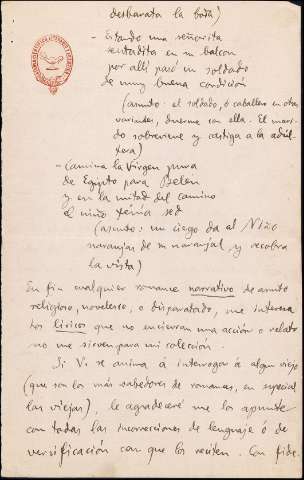 desbarata la boda)
- Estando una señorita
sentadita en su balcon
por alli pasó un soldado
de muy buena condición
(asunto: el soldado, ó caballero en otras
variantes, duerme con ella. El mari-
do sobreviene y castiga a la adúl-
tera)
- Camina la Virgen pura
de Egypto para Belén
y en la mitad del camino
el niño tenía sed
(asunto: un ciego da al Niño
naranjas de su naranjal, y recobra
la vista)
En fin cualquier romance narrativo de asunto
religioso, novelesco, o disparatado, me interesa
Los líricos que no encierran una acción o relato
no me sirven para mi colección.
Si V. se anima á interrogar á algun viejo
(que son los más sabedores de romances, en especial
las viejas), le agradeceré me los apunte
con todas las incorrecciones de lenguaje ó de
versificación con que los reciten. Con fide-